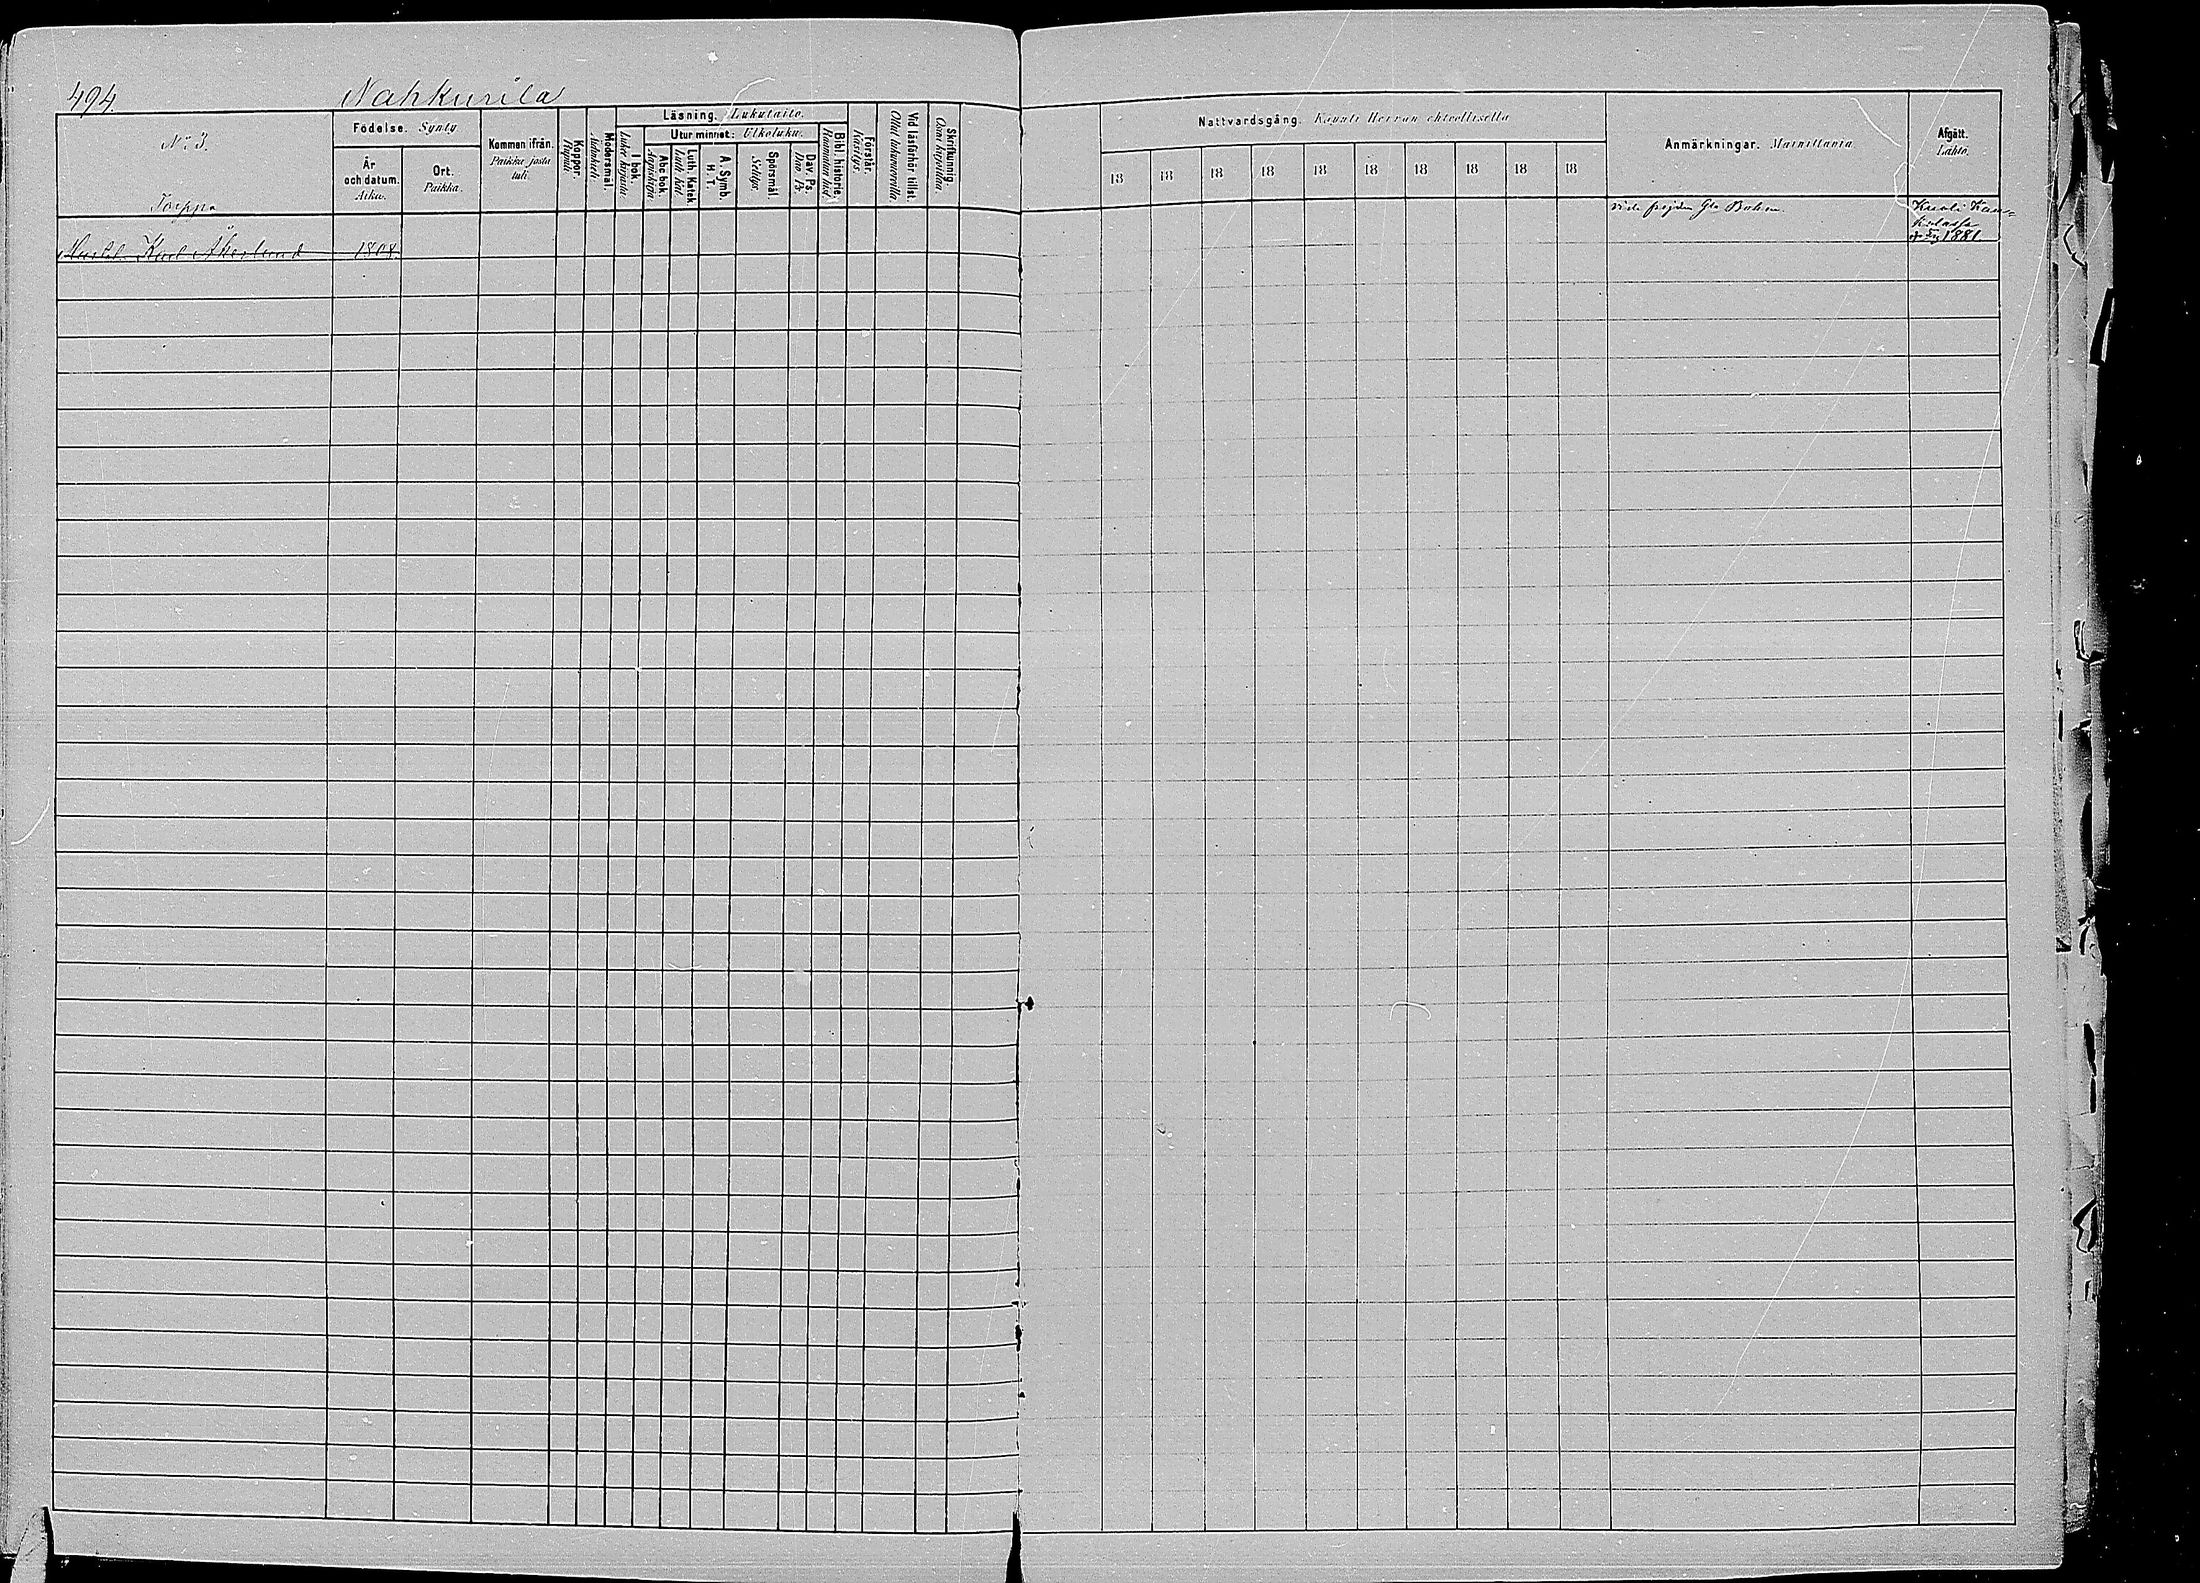 494.
Nahkurila
N:o 3.
Torppa
Födelse. Synty.
År och datum. Aika.
Ort. Paikka.
Kommen ifrån. Paikka josta tuli.
Koppor. Rupuli
Modersmål. Äidinkieli.
Läsning. Lukutaito.
I bok. Lukee kirjasta
Utur minnet: Ulkoluku.
Abc bok. Aapiskirja
Luth. Katek. Luth. Kat.
A. Symb. H. T.
Spörsmål. Selitys.
Dav. Ps. Dav. Ps.
Bibl. historie. Raamatun hist.
Förstår. Käsitys.
Vid läsförhör tillst. Ollut lukuvuorolla
Skrifkunnig. Osaa kirjoittaa
Nattvardsgång. Käynti Herran ehtoollisella
18 18 18 18 18 18 18 18 18 18
Anmärkningar. Mainittavia
Afgått. Lähtö.
Karl Åkerlund 1808
vide
Kuoli
1881.